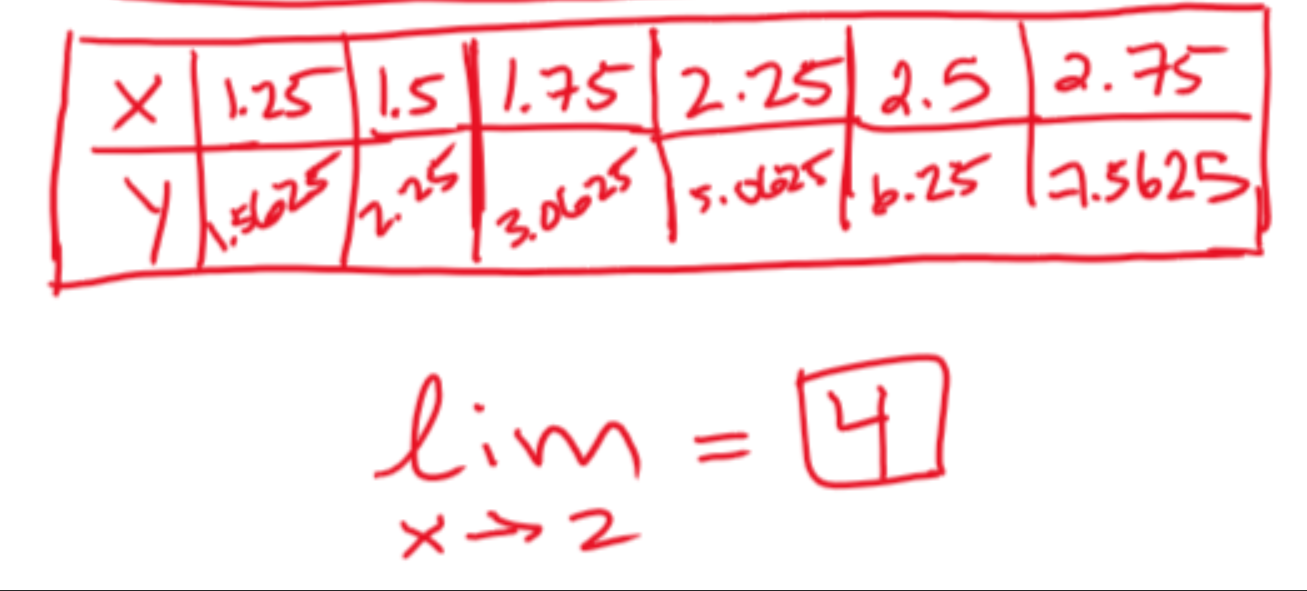 X 1.25 1.5 1.75 2.25 2.5 2.75
Y 1.5625 2.25 3.0625 5.0625 6.25 7.5625
lim = 4
x → 2